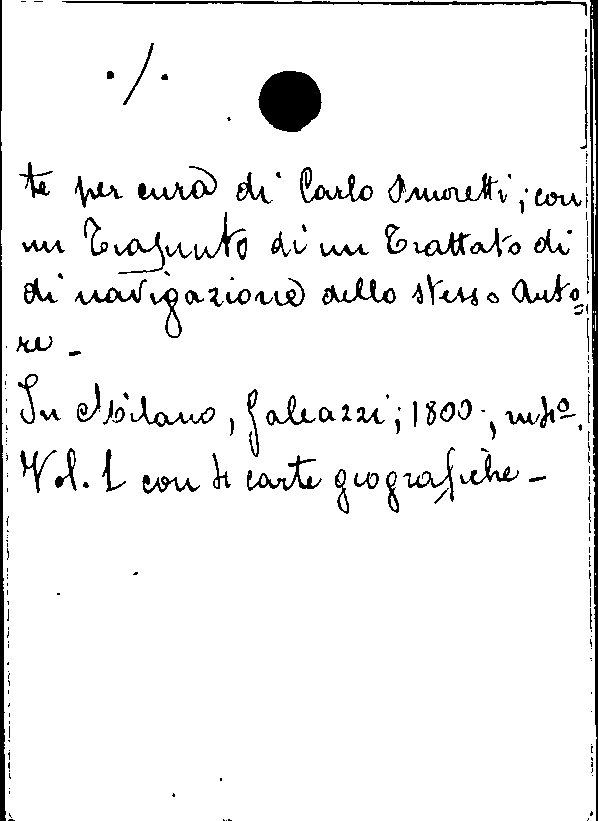 ./.
te per cura di Carlo Amoretti; con
un Trasunto di un Trattato di
di navigazione dello stesso Auto=
re -
In Milano, Galeazzi; 1800., in 4º.
Vol. 1 con 4 carte geografiche -